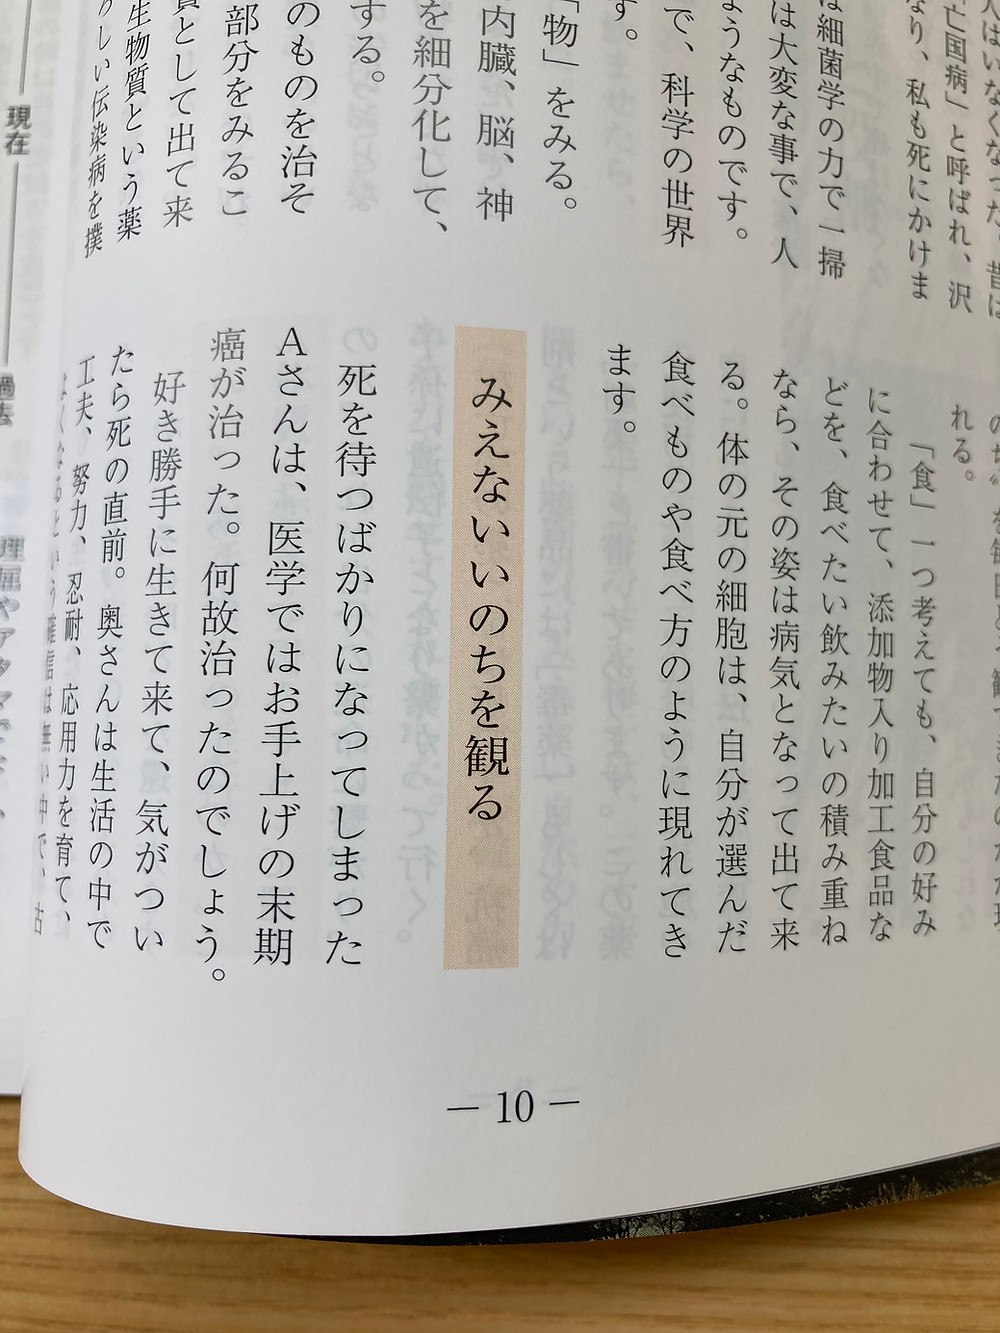 人はいなくなった。昔は
亡国病」と呼ばれ、沢
なり、私も死にかけま
は細菌学の力で一掃
は大変な事で、人
ようなものです。
で、科学の世界
す。
「物」をみる。
内臓、脳、神
を細分化して、
する。
のものを治そ
部分をみるこ
質として出て来
生物質という薬
しい伝染病を撲
れる。
「食」一つ考えても、自分の好み
に合わせて、添加物入り加工食品な
どを、食べたい飲みたいの積み重ね
なら、その姿は病気となって出て来
る。体の元の細胞は、自分が選んだ
食べものや食べ方のように現れてき
ます。
みえないいのちを観る
死を待つばかりになってしまった
Aさんは、医学ではお手上げの末期
癌が治った。何故治ったのでしょう。
好き勝手に生きて来て、気がつい
たら死の直前。奥さんは生活の中で
工夫、努力、忍耐、応用力を育て、
よくなるという確信は無い中で、古
― 10 ―
現在
過去